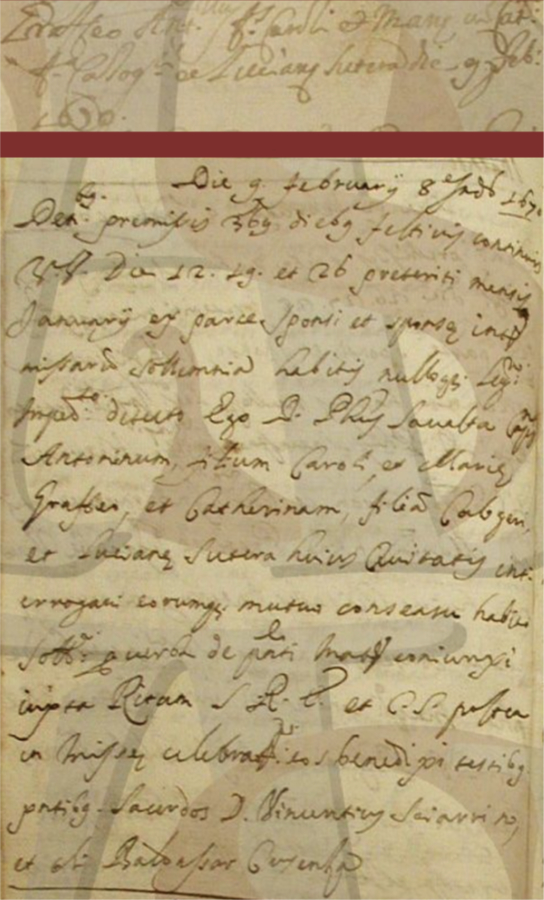 Graffeo Ant. f. Caroli et Mariæ cu Cat.
f. Calog. et Lucianæ Sutera die 9 Feb.
1670.
Die 9 februarij 8 Indis 1670
Den. premissis 3bg diebg festivis continuis
Die 12. 19. et 26 preteriti mensis
Januarij ex parte Sponsi et sponsæ inter
missarũ sollemnia habitis nulloqz legmo
Impedto. detecto Ego D. Phus Savalta
Antoninum, filium Caroli, et Mariæ
Graffeo, et Catherinam, filiã Calogeri,
et Lucianæ Sutera huius Civitatis int.
errogavi eorumqz mutuo consensu habito
sollr. per verba de pnti Matr coniunxi
iuxta Ritum S. R. E. et C. S. postea
in Missæ celebrat. eos benedixi testibg
pntibg. Sacerdos D. Vincentius Sciarrino,
et cli. Baldassar Cusenza